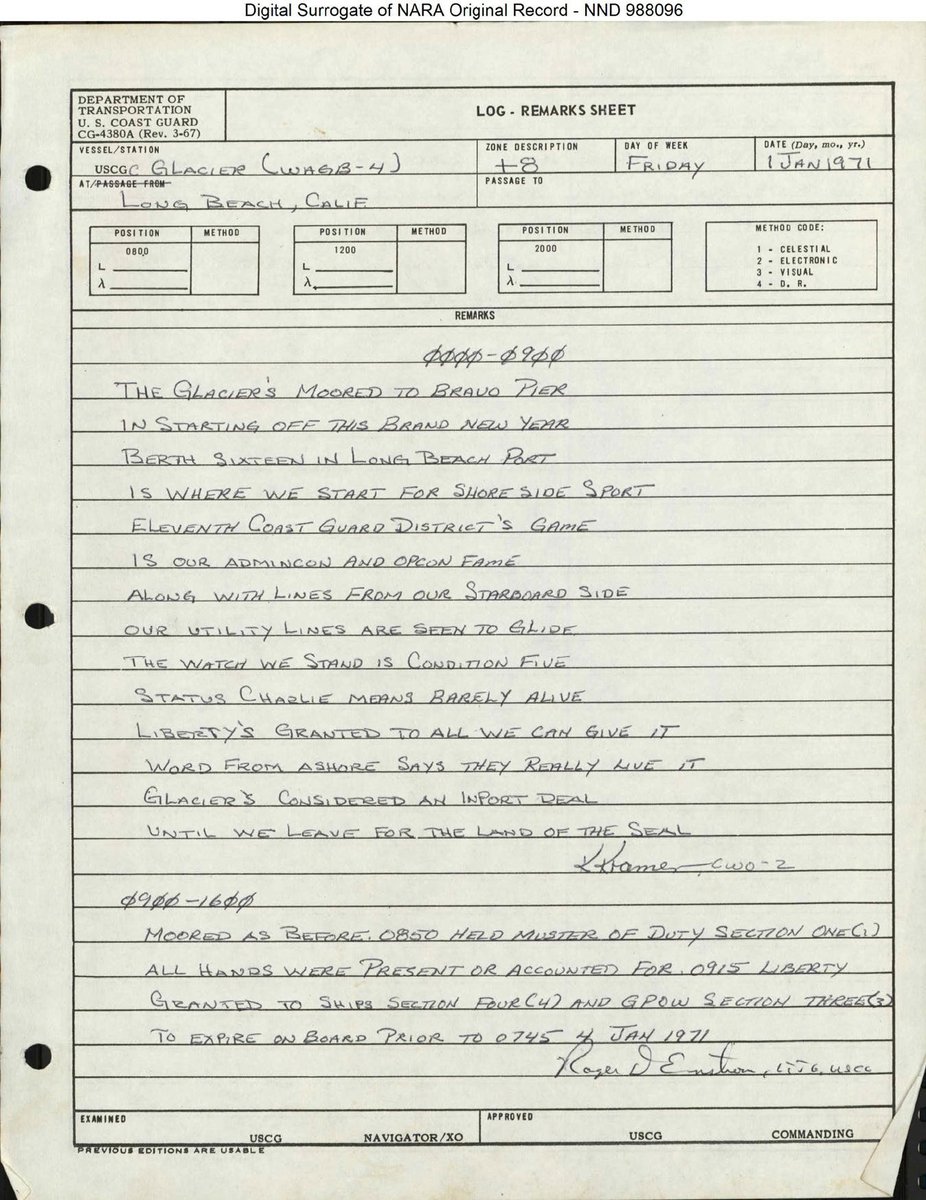 Digital Surrogate of NARA Original Record - NND 988096
DEPARTMENT OF
TRANSPORTATION
U. S. COAST GUARD
CG-4380A (Rev. 3-67)
LOG - REMARKS SHEET
VESSEL/STATION
USCGC GLACIER (WAGB-4)
ZONE DESCRIPTION
+8
DAY OF WEEK
FRIDAY
DATE (Day, mo., yr.)
1 JAN 1971
AT/PASSAGE FROM
LONG BEACH, CALIF
PASSAGE TO
POSITION METHOD
0800
L
λ
POSITION METHOD
1200
L
λ
POSITION METHOD
2000
L
λ
METHOD CODE:
1 - CELESTIAL
2 - ELECTRONIC
3 - VISUAL
4 - D. R.
REMARKS
0000-0900
THE GLACIER'S MOORED TO BRAVO PIER
IN STARTING OFF THIS BRAND NEW YEAR
BERTH SIXTEEN IN LONG BEACH PORT
IS WHERE WE START FOR SHORE SIDE SPORT
ELEVENTH COAST GUARD DISTRICT'S GAME
IS OUR ADMINCON AND OPCON FAME
ALONG WITH LINES FROM OUR STARBOARD SIDE
OUR UTILITY LINES ARE SEEN TO GLIDE
THE WATCH WE STAND IS CONDITION FIVE
STATUS CHARLIE MEANS BARELY ALIVE
LIBERTY'S GRANTED TO ALL WE CAN GIVE IT
WORD FROM ASHORE SAYS THEY REALLY LIVE IT
GLACIER'S CONSIDERED AN INPORT DEAL
UNTIL WE LEAVE FOR THE LAND OF THE SEAL
K Kramer, CWO-2
0900-1600
MOORED AS BEFORE. 0850 HELD MUSTER OF DUTY SECTION ONE(1)
ALL HANDS WERE PRESENT OR ACCOUNTED FOR. 0915 LIBERTY
GRANTED TO SHIPS SECTION FOUR(4) AND GPOW SECTION THREE(3)
TO EXPIRE ON BOARD PRIOR TO 0745 4 JAN 1971
Roger D LTJG, USCG
EXAMINED
USCG NAVIGATOR/XO
APPROVED
USCG COMMANDING
PREVIOUS EDITIONS ARE USABLE